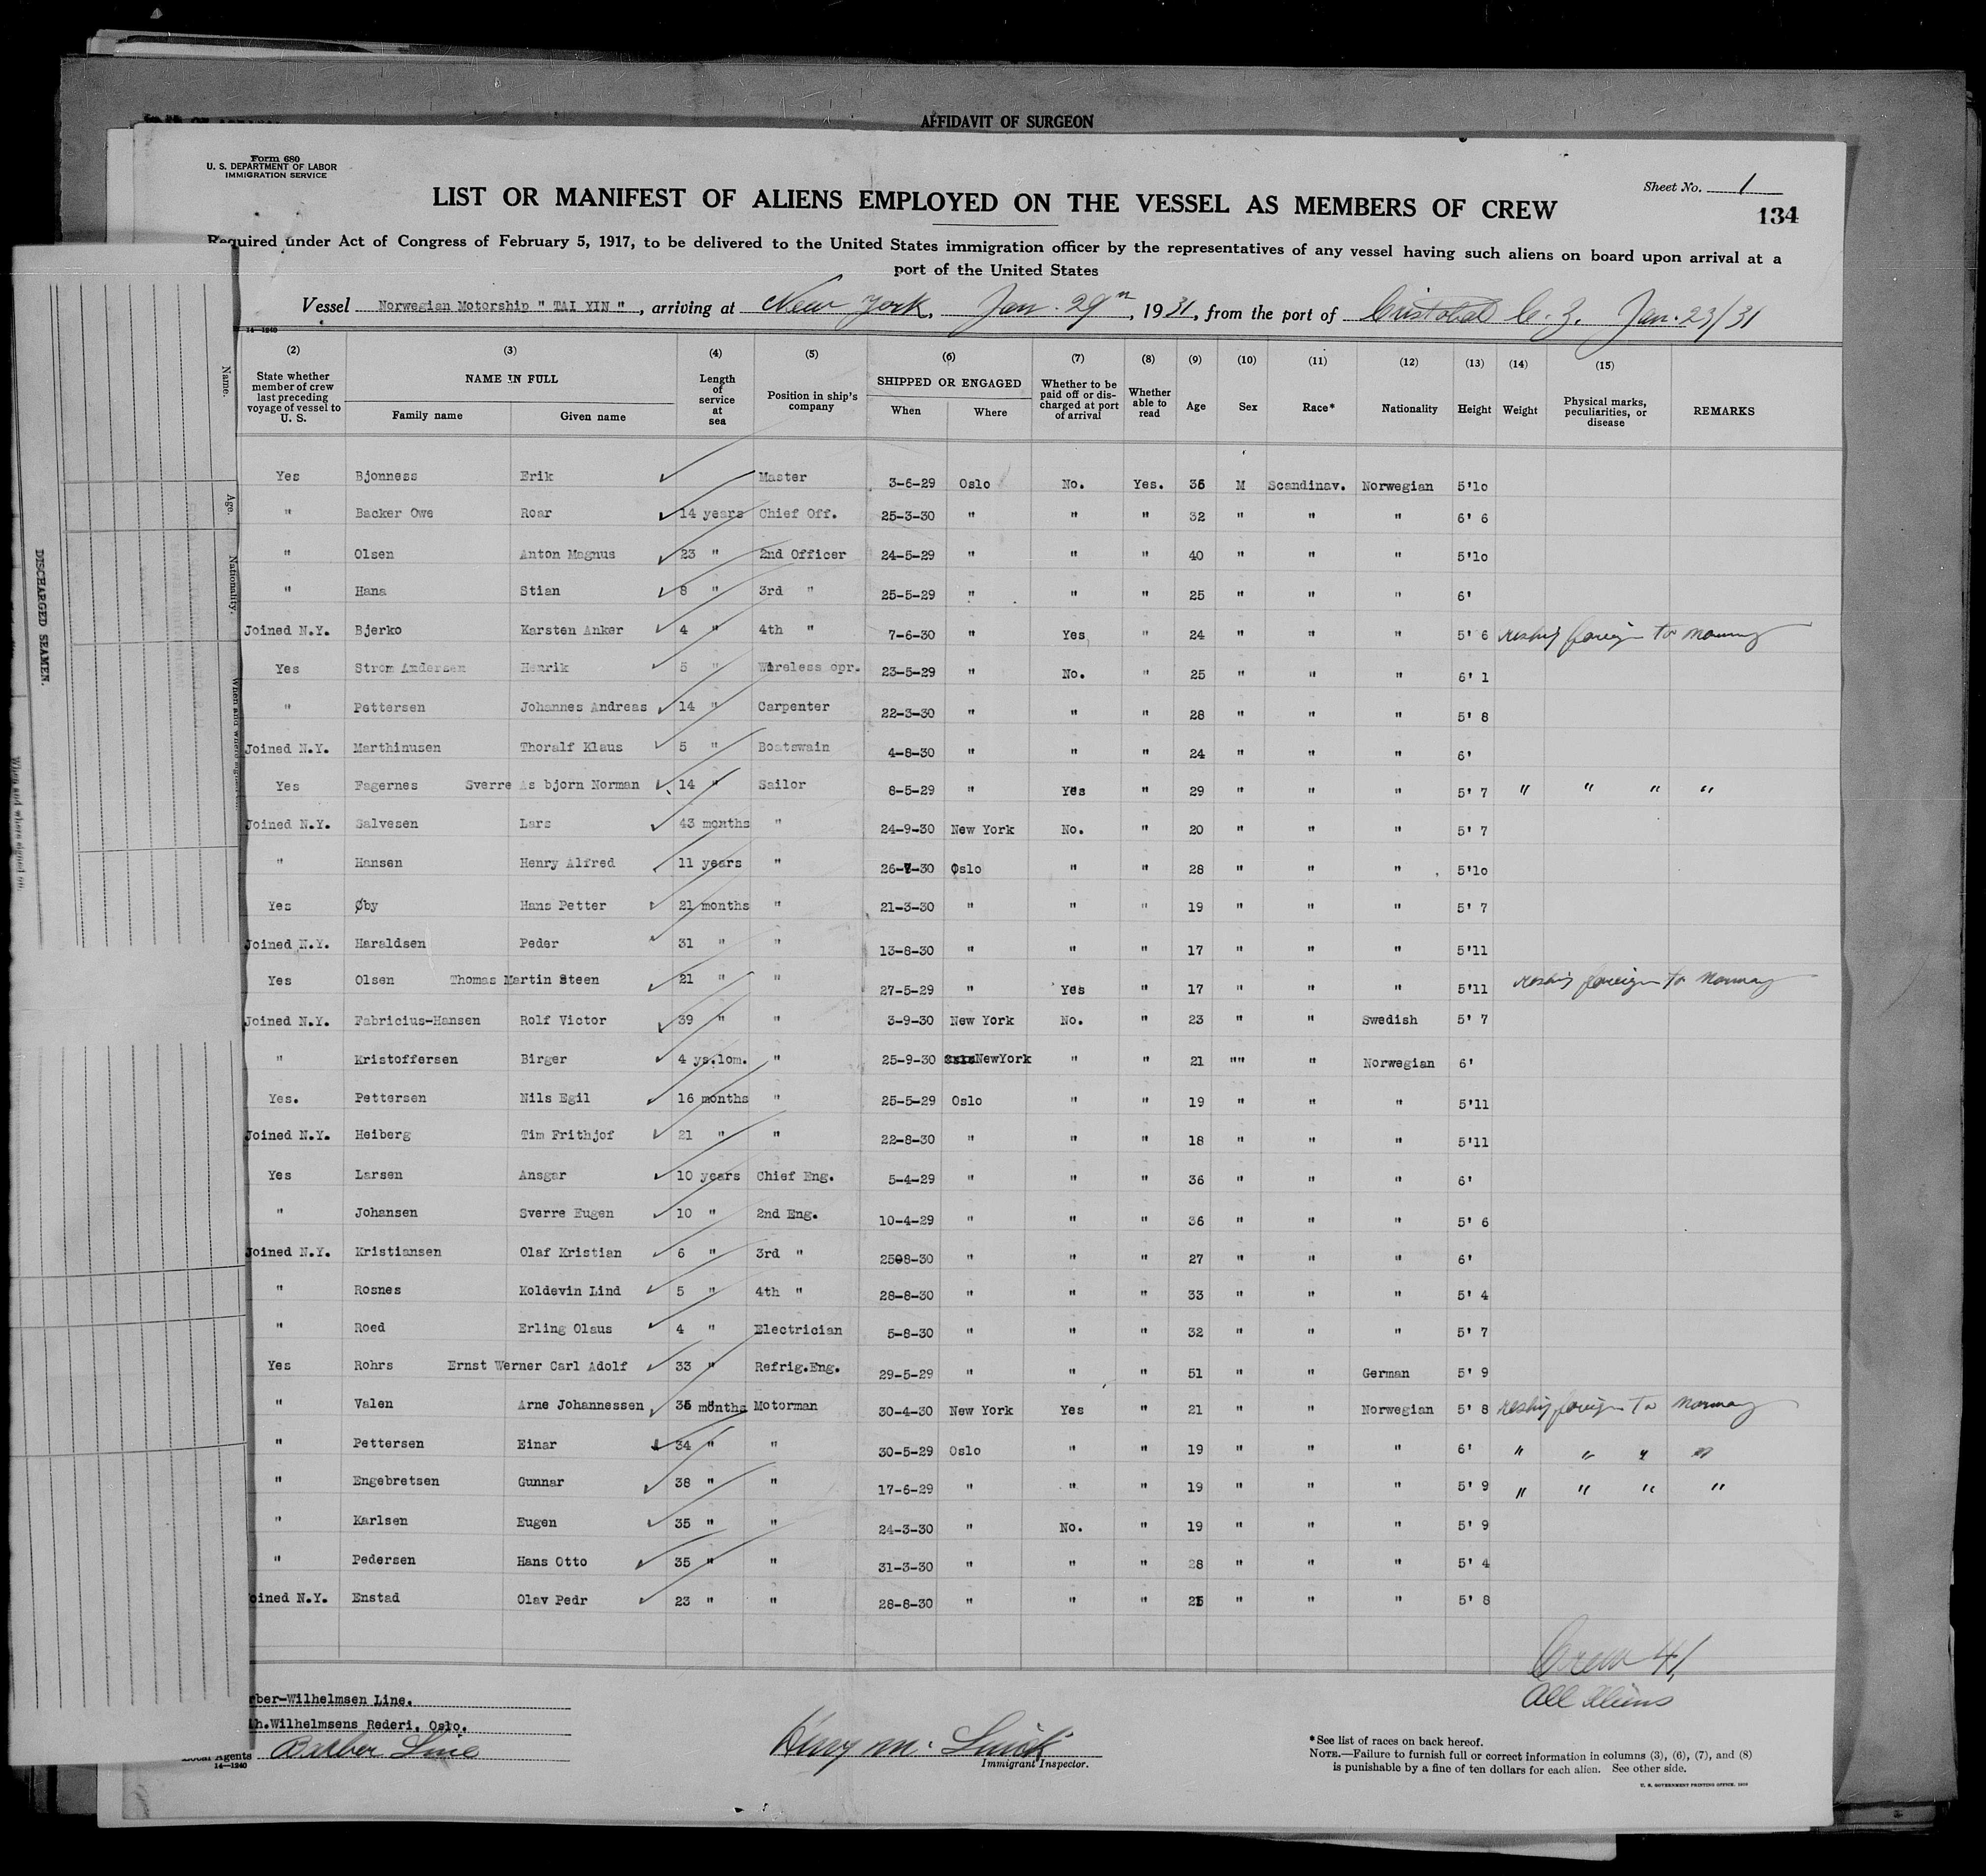 AFFIDAVIT OF SURGEON
Form 680
U. S. DEPARTMENT OF LABOR
IMMIGRATION SERVICE
Sheet No. 1
134
LIST OR MANIFEST OF ALIENS EMPLOYED ON THE VESSEL AS MEMBERS OF CREW
Required under Act of Congress of February 5, 1917, to be delivered to the United States immigration officer by the representatives of any vessel having such aliens on board upon arrival at a
port of the United States
Vessel Norwegian Motorship " TAI YIN " , arriving at New York, Jan. 29th, 1931, from the port of Cristobal C. Z. Jan. 23/31
14—1240
(2) (3) (4) (5) (6) (7) (8) (9) (10) (11) (12) (13) (14) (15)
State whether member of crew last preceding voyage of vessel to U. S. NAME IN FULL Family name Given name Length of service at sea Position in ship's company SHIPPED OR ENGAGED When Where Whether to be paid off or discharged at port of arrival Whether able to read Age Sex Race* Nationality Height Weight Physical marks, peculiarities, or disease REMARKS
Yes Bjonness Erik Master 3-6-29 Oslo No. Yes. 36 M Scandinav. Norwegian 5'10
" Backer Owe Roar 14 years Chief Off. 25-3-30 " " " 32 " " " 6' 6
" Olsen Anton Magnus 23 " 2nd Officer 24-5-29 " " " 40 " " " 5'10
" Hana Stian 8 " 3rd " 25-5-29 " " " 25 " " " 6'
Joined N.Y. Bjerko Karsten Anker 4 " 4th " 7-6-30 " Yes " 24 " " " 5' 6 reship foreign to Norway
Yes Strom Andersen Henrik 5 " Wireless opr. 23-5-29 " No. " 25 " " " 6' 1
" Pettersen Johannes Andreas 14 " Carpenter 22-3-30 " " " 28 " " " 5' 8
Joined N.Y. Marthinusen Thoralf Klaus 5 " Boatswain 4-8-30 " " " 24 " " " 6'
Yes Fagernes Sverre As bjorn Norman 14 " Sailor 8-5-29 " Yes " 29 " " " 5' 7 " " " "
Joined N.Y. Salvesen Lars 43 months " 24-9-30 New York No. " 20 " " " 5' 7
" Hansen Henry Alfred 11 years " 26-7-30 Oslo " " 28 " " " 5'10
Yes Øby Hans Petter 21 months " 21-3-30 " " " 19 " " " 5' 7
Joined N.Y. Haraldsen Peder 31 " " 13-8-30 " " " 17 " " " 5'11
Yes Olsen Thomas Martin Steen 21 " " 27-5-29 " Yes " 17 " " " 5'11 reship foreign to Norway
Joined N.Y. Fabricius-Hansen Rolf Victor 39 " " 3-9-30 New York No. " 23 " " Swedish 5' 7
" Kristoffersen Birger 4 ys.1om. " 25-9-30 NewYork " " 21 "" " Norwegian 6'
Yes. Pettersen Nils Egil 16 months " 25-5-29 Oslo " " 19 " " " 5'11
Joined N.Y. Heiberg Tim Frithjof 21 " " 22-8-30 " " " 18 " " " 5'11
Yes Larsen Ansgar 10 years Chief Eng. 5-4-29 " " " 36 " " " 6'
" Johansen Sverre Eugen 10 " 2nd Eng. 10-4-29 " " " 36 " " " 5' 6
Joined N.Y. Kristiansen Olaf Kristian 6 " 3rd " 25-8-30 " " " 27 " " " 6'
" Rosnes Koldevin Lind 5 " 4th " 28-8-30 " " " 33 " " " 5' 4
" Roed Erling Olaus 4 " Electrician 5-8-30 " " " 32 " " " 5' 7
Yes Rohrs Ernst Werner Carl Adolf 33 " Refrig.Eng. 29-5-29 " " " 51 " " German 5' 9
" Valen Arne Johannessen months Motorman 30-4-30 New York Yes " 21 " " Norwegian 5' 8 reship foreign to Norway
" Pettersen Einar 34 " " 30-5-29 Oslo " " 19 " " " 6' " " " "
" Engebretsen Gunnar 38 " " 17-6-29 " " " 19 " " " 5' 9 " " " "
" Karlsen Eugen 35 " " 24-3-30 " No. " 19 " " " 5' 9
" Pedersen Hans Otto 35 " " 31-3-30 " " " 28 " " " 5' 4
oined N.Y. Enstad Olav Pedr 23 " " 28-8-30 " " " " " " 5' 8
Crew 41
All Aliens
rber-Wilhelmsen Line.
lh.Wilhelmsens Rederi, Oslo.
Local Agents Barber Line
14—1240
Immigrant Inspector.
*See list of races on back hereof.
NOTE.—Failure to furnish full or correct information in columns (3), (6), (7), and (8)
is punishable by a fine of ten dollars for each alien. See other side.
U. S. GOVERNMENT PRINTING OFFICE: 
DISCHARGED SEAMEN.
Name.
Age.
Nationality.
When and where signed on.